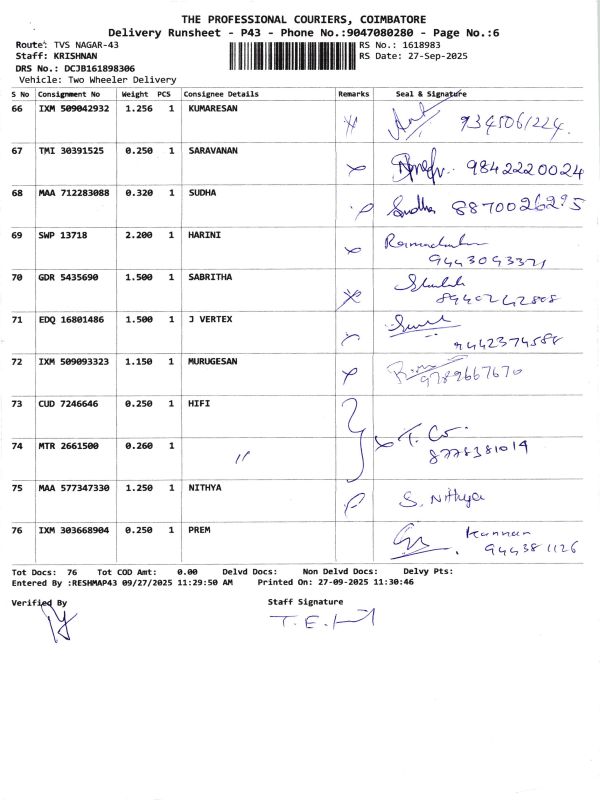 THE PROFESSIONAL COURIERS, COIMBATORE
Delivery Runsheet - P43 - Phone No.:9047080280 - Page No.:6
Route: TVS NAGAR-43 RS No.: 1618983
Staff: KRISHNAN RS Date: 27-Sep-2025
DRS No.: DCJB161898306
Vehicle: Two Wheeler Delivery
S No Consignment No Weight PCS Consignee Details Remarks Seal & Signature
66 IXM 509042932 1.256 1 KUMARESAN 9345061224.
67 TMI 30391525 0.250 1 SARAVANAN 9842220024
68 MAA 712283088 0.320 1 SUDHA Sudha 8870026295
69 SWP 13718 2.200 1 HARINI
9443093371
70 GDR 5435690 1.500 1 SABRITHA
71 EDQ 16801486 1.500 1 J VERTEX
9442374588
72 IXM 509093323 1.150 1 MURUGESAN
9789667670
73 CUD 7246646 0.250 1 HIFI
T. Co.
74 MTR 2661500 0.260 1 "
8778381019
75 MAA 577347330 1.250 1 NITHYA S. Nithya
76 IXM 303668904 0.250 1 PREM Kannan
944381126
Tot Docs: 76 Tot COD Amt: 0.00 Delvd Docs: Non Delvd Docs: Delvy Pts:
Entered By :RESHMAP43 09/27/2025 11:29:50 AM Printed On: 27-09-2025 11:30:46
Verified By Staff Signature